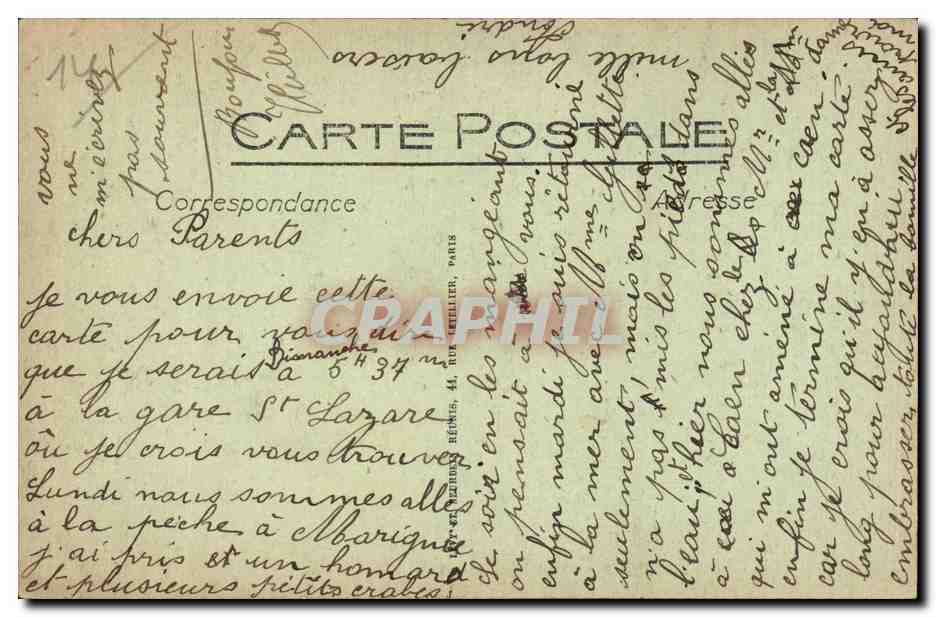 CARTE POSTALE
Correspondance
Adresse
chers Parents
je vous envoie cette
carte pour vous dire
que je serais Dimanche à 5H 37m
à la gare St Lazare
où je crois vous trouver
Lundi nous sommes allés
à la pêche à
j'ai pris et un homard
et plusieurs petits crabes.
Le soir en les mangeant
on pensait à vous.
enfin mardi je suis retourné
à la mer avec Mme Gillette
seulement, mais on
n'a pas mis les pieds dans
l'eau, et hier nous sommes allés
à Caen chez Mr et la
qui m'ont amené à caen dans
enfin je termine ma carte
car je crois qu'il y'en a assez
long pour aujourdhui
embrasser toute la famille
mille bons baisers
André
vous
ne
m'écrivez
pas
souvent
Bonjour
LEVY ET NEURDEIN RÉUNIS, 44, RUE LETELLIER, PARIS
CRAPHIL